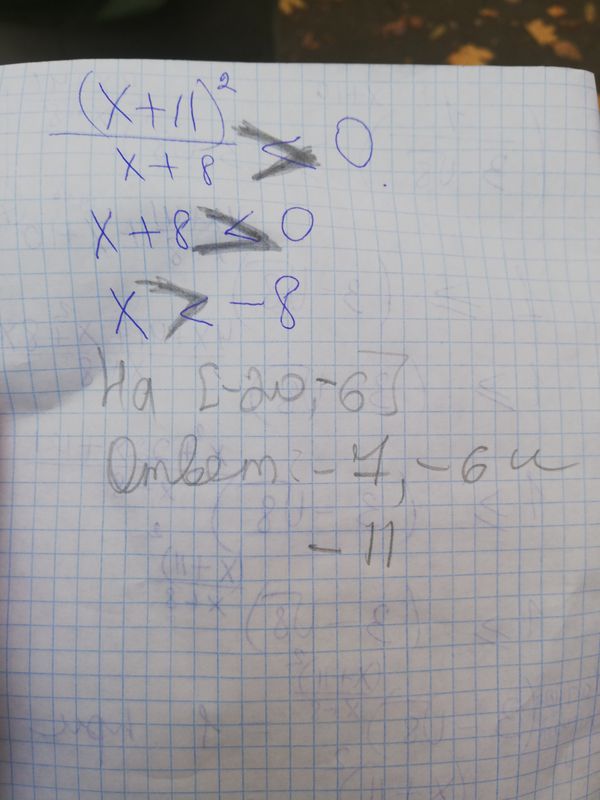 (x+11)²
x+8 > 0
x+8 > 0
x > -8
На [-20;-6]
Ответ: -7, -6 и
-11